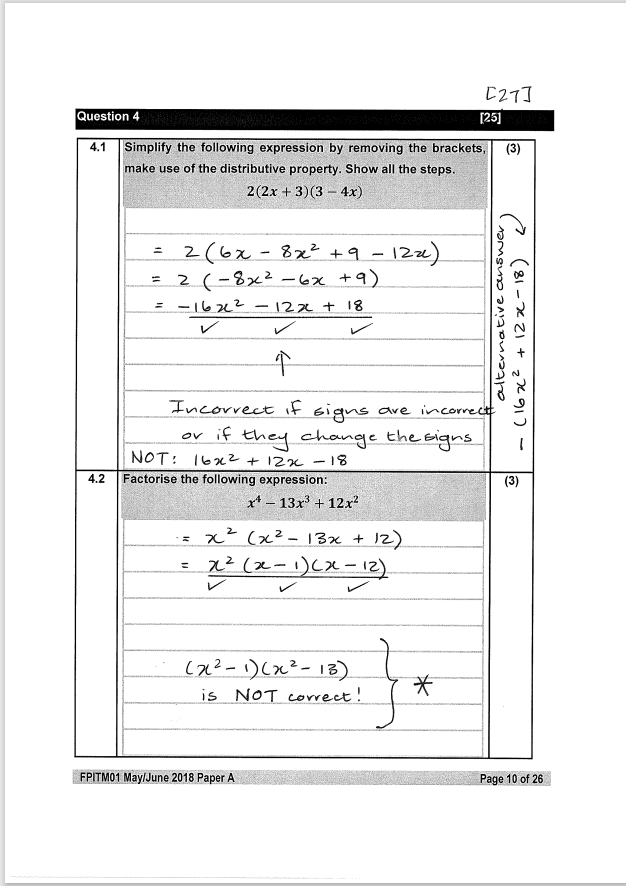 [27]
Question 4 [25]
4.1 Simplify the following expression by removing the brackets, (3)
make use of the distributive property. Show all the steps.
2(2x + 3)(3 − 4x)
= 2(6x − 8x² + 9 − 12x)
= 2 (−8x² − 6x + 9)
= −16x² − 12x + 18
✓ ✓ ✓
↑
Incorrect if signs are incorrect
or if they change the signs
NOT: 16x² + 12x − 18
alternative answer
− (16x² + 12x − 18) ✓
4.2 Factorise the following expression: (3)
x⁴ − 13x³ + 12x²
= x² (x² − 13x + 12)
= x² (x − 1)(x − 12)
✓ ✓ ✓
(x² − 1)(x² − 13)
is NOT correct! } *
FPITM01 May/June 2018 Paper A Page 10 of 26